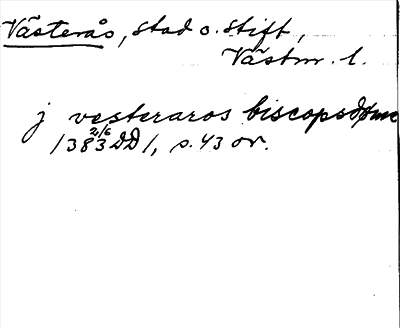 Västerås, stad o. stift,
Västm. l.
j vesteraros biscopsdøme
2/6
1383 DD 1, s. 43 or.